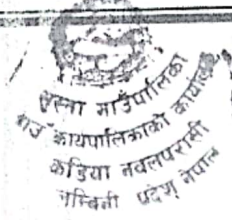 सुस्ता गाउँपालिका
गाउँ कार्यपालिकाको कार्यालय
कुडिया नवलपरासी
लुम्बिनी प्रदेश, नेपाल